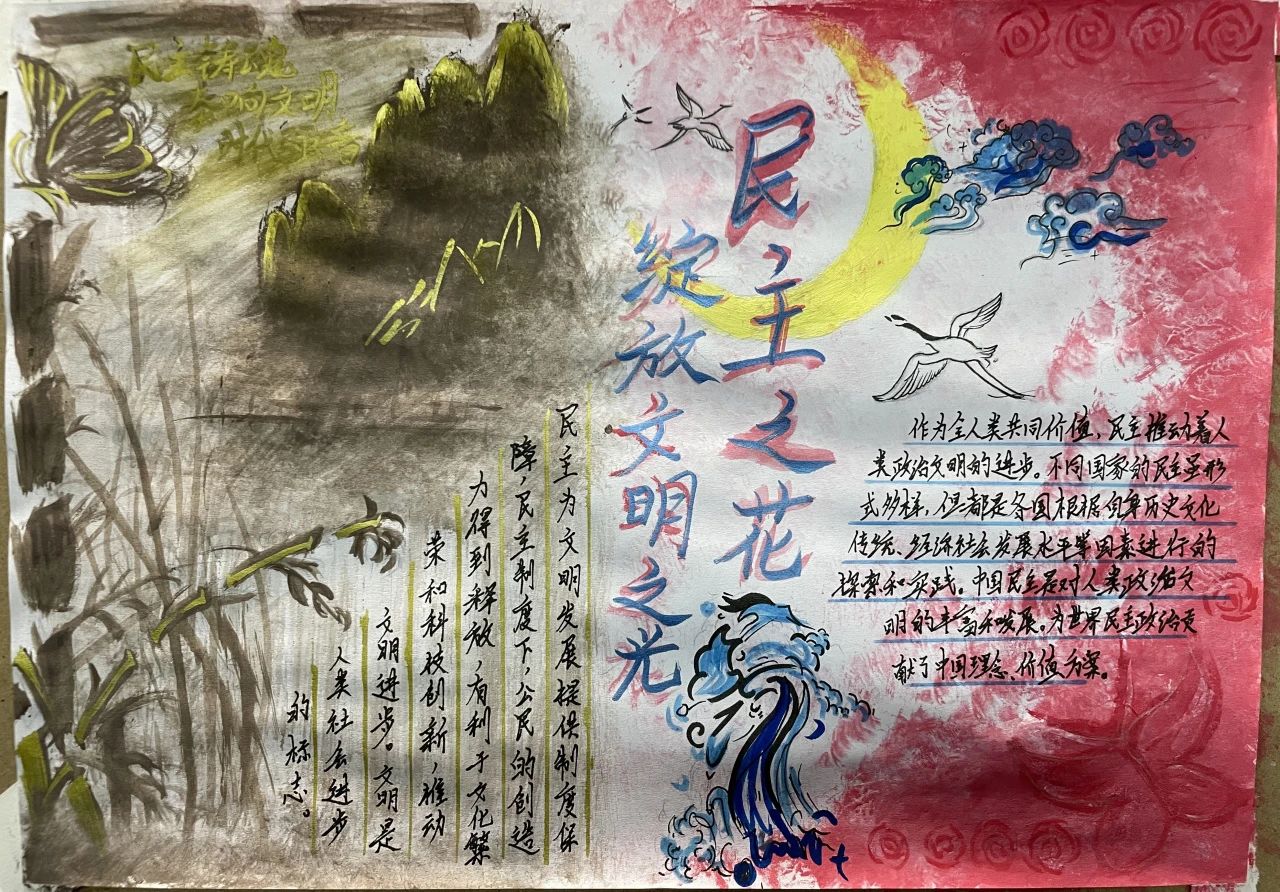 民主之花
绽放文明之光
民主铸魂
文明
作为全人类共同价值，民主推动着人
类政治文明的进步。不同国家的民主虽形
式多样，但都是各国根据自身历史文化
传统、经济社会发展水平等因素进行的
探索和实践。中国民主是对人类政治文
明的丰富和发展。为世界民主政治贡
献了中国理念、价值、方案。
民主为文明发展提供制度保
障，民主制度下，公民的创造
力得到释放，有利于文化繁
荣和科技创新，推动
文明进步。文明是
人类社会进步
的标志。